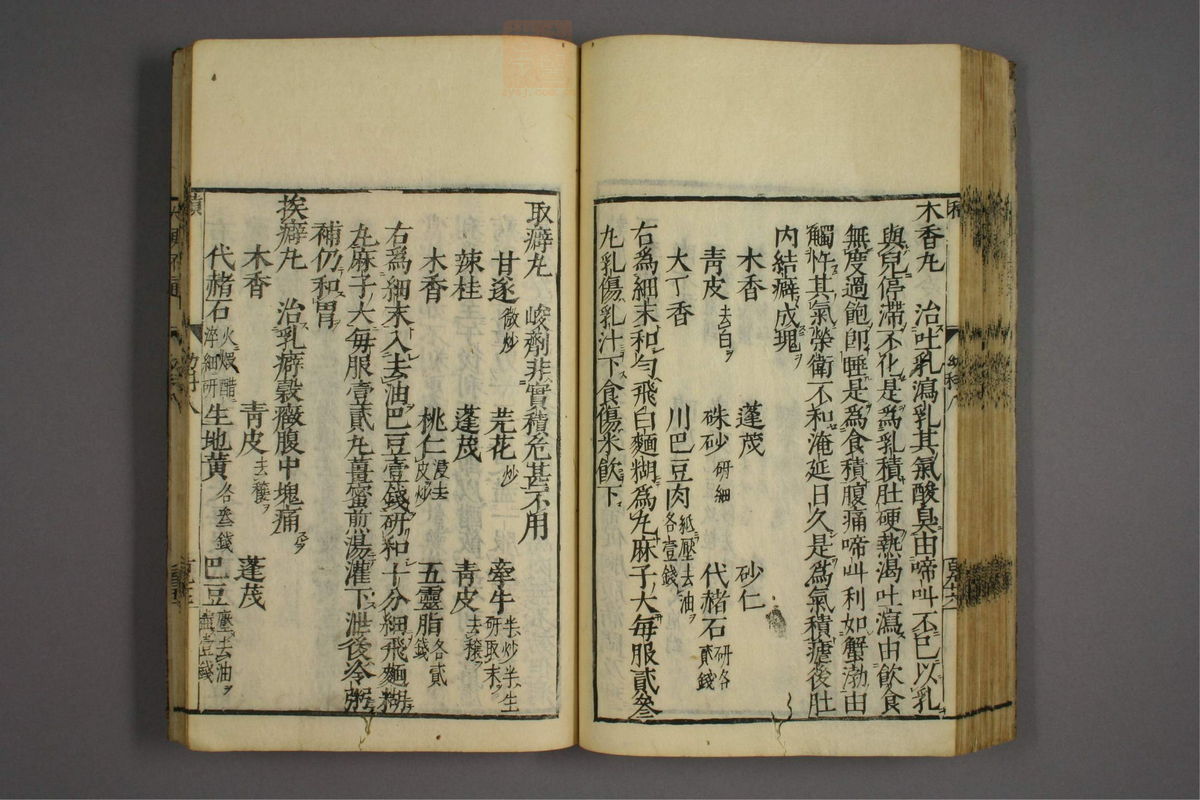 木香丸　治吐乳瀉乳其氣酸臭由啼叫不已以乳
與兒停滯不化是爲乳積肚硬熱渴吐瀉由飲食
無度過飽卽睡是爲食積腹痛啼叫利如蟹渤由
觸忤其氣榮衛不和淹延日久是爲氣積䕪後肚
內結癖成塊
木香　蓬莪　砂仁
靑皮去白　硃砂研細　代赭石研各貳錢
大丁香　川巴豆肉紙壓去油各壹錢
右爲細末和勻飛白麵糊爲丸麻子大每服貳叄
丸乳傷乳汁下食傷米飲下
取癖丸　峻劑非實積危甚不用
甘遂微炒　芫花炒　牽牛半炒半生研取末
辣桂　蓬莪　靑皮去穰
木香　桃仁浸去皮炒　五靈脂各貳錢
右爲細末入去油巴豆壹錢研和十分細飛麵糊
丸麻子大每服壹貳丸薑蜜煎湯灌下泄後冷粥
補仍和胃
挨癖丸　治乳癖穀癥腹中塊痛
木香　靑皮去穰　蓬莪
代赭石火煆醋淬細研　生地黃各叄錢　巴豆壓去油壹錢